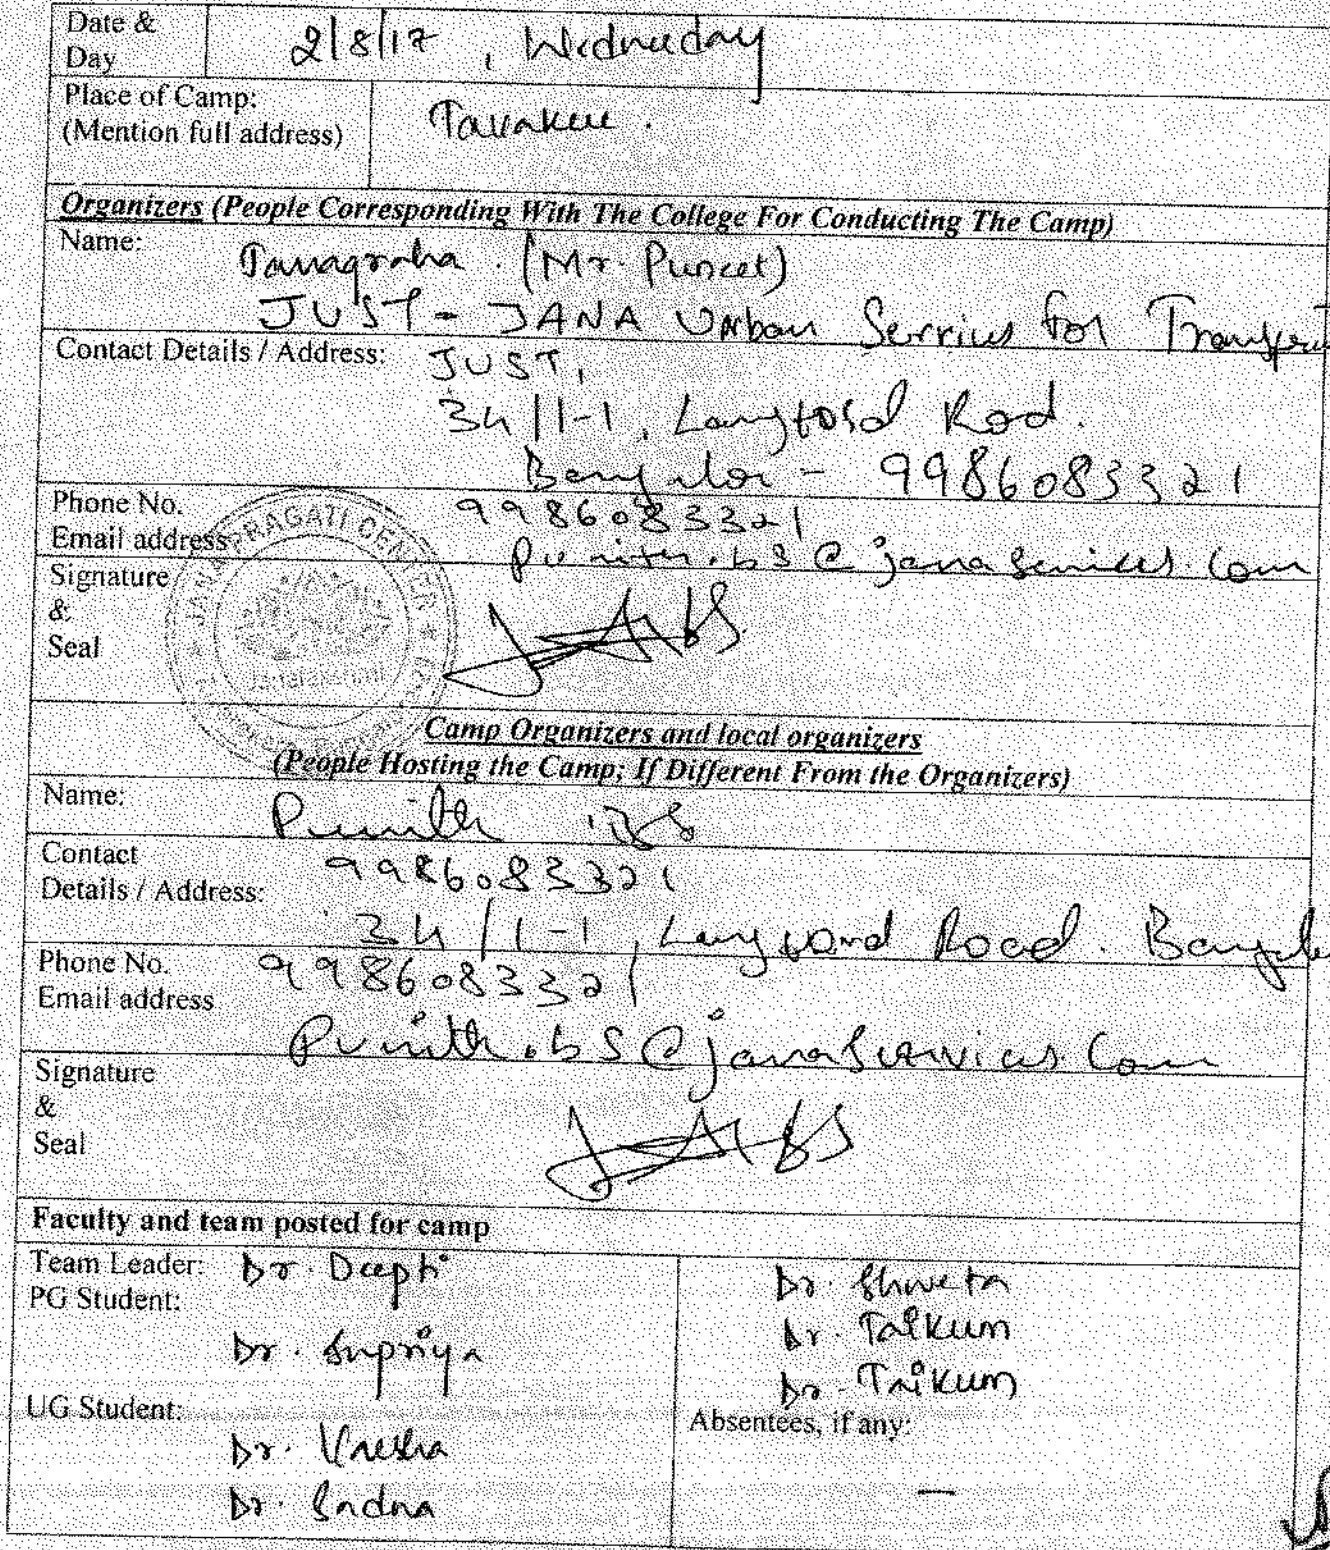 Date &
Day
2/8/17 , Wednesday
Place of Camp:
(Mention full address)
Organizers (People Corresponding With The College For Conducting The Camp)
Name:
(Mr. Puneet)
JUST - JANA Urban Services for
Contact Details / Address: JUST,
34/1-1, Langford Road.
Bangalor - 9986083321
Phone No. 9986083321
Email address punith.bs@janaservices.com
Signature
&
Seal
JANA PRAGATI CENTER
Janalakshmi
Camp Organizers and local organizers
(People Hosting the Camp; If Different From the Organizers)
Name: Punith .BS
Contact 9986083321
Details / Address:
34/1-1, Langford Road. Bangalo
Phone No. 9986083321
Email address
Punith.bs@janaservices.com
Signature
&
Seal
Faculty and team posted for camp
Team Leader: Dr. Deepti
PG Student:
Dr. Supriya
UG Student:
Dr. Varsha
Dr. Shweta
Dr. Taikum
Dr. Taikum
Absentees, if any:
—